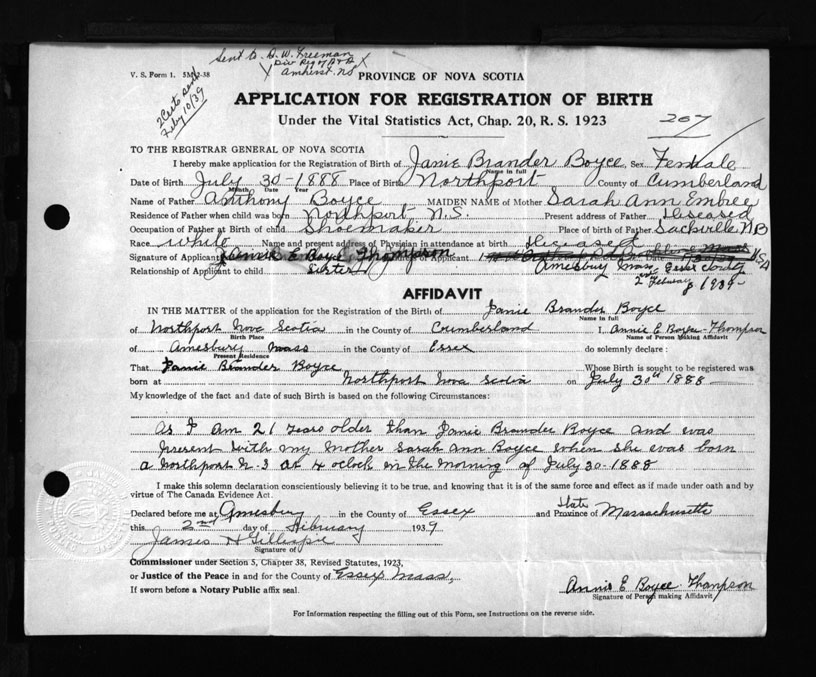 Sent to D. W. Freeman
Div Reg of B & D
Amherst. NS
V. S. Form 1. 5M-2-38
2 Certs sent
Feby 10/39
PROVINCE OF NOVA SCOTIA
APPLICATION FOR REGISTRATION OF BIRTH
Under the Vital Statistics Act, Chap. 20, R. S. 1923
207
TO THE REGISTRAR GENERAL OF NOVA SCOTIA
I hereby make application for the Registration of Birth of Janie Brander Boyce Sex Female
Name in full
Date of Birth July 30-1888 Place of Birth Northport County of Cumberland
Month Date Year
Name of Father Anthony Boyce MAIDEN NAME of Mother Sarah Ann Embree
Residence of Father when child was born Northport, N.S. Present address of Father Diseased
Occupation of Father at Birth of child Shoemaker Place of birth of Father Sackville NB
Race white Name and present address of Physician in attendance at birth Diseased
Signature of Applicant Annie E Boyce Thompson of Applicant
Amesbury Mass Essex County USA
Relationship of Applicant to child Sister 2nd February 1939-
AFFIDAVIT
IN THE MATTER of the application for the Registration of the Birth of Janie Brander Boyce
Name in full
of Northport Nova Scotia in the County of Cumberland I, Annie E Boyce-Thompson
Birth Place Name of Person Making Affidavit
of Amesbury Mass in the County of Essex do solemnly declare:
Present Residence
That Janie Brander Boyce Whose Birth is sought to be registered was
born at Northport Nova Scotia on July 30th 1888
My knowledge of the fact and date of such Birth is based on the following Circumstances:
As I am 21 years older than Janie Brander Boyce and was
present with my Mother Sarah Ann Boyce when she was born
a Northport N.S At 4 oclock in the morning of July 30-1888
I make this solemn declaration conscientiously believing it to be true, and knowing that it is of the same force and effect as if made under oath and by
virtue of The Canada Evidence Act.
Declared before me at Amesbury in the County of Essex and State Province of Massachusetts
this 2nd day of February 1939
James H Gillespie
Signature of
Commissioner under Section 5, Chapter 38, Revised Statutes, 1923,
or Justice of the Peace in and for the County of Essex Mass,
If sworn before a Notary Public affix seal.
Annie E Boyce Thompson
Signature of Person making Affidavit
For Information respecting the filling out of this Form, see Instructions on the reverse side.